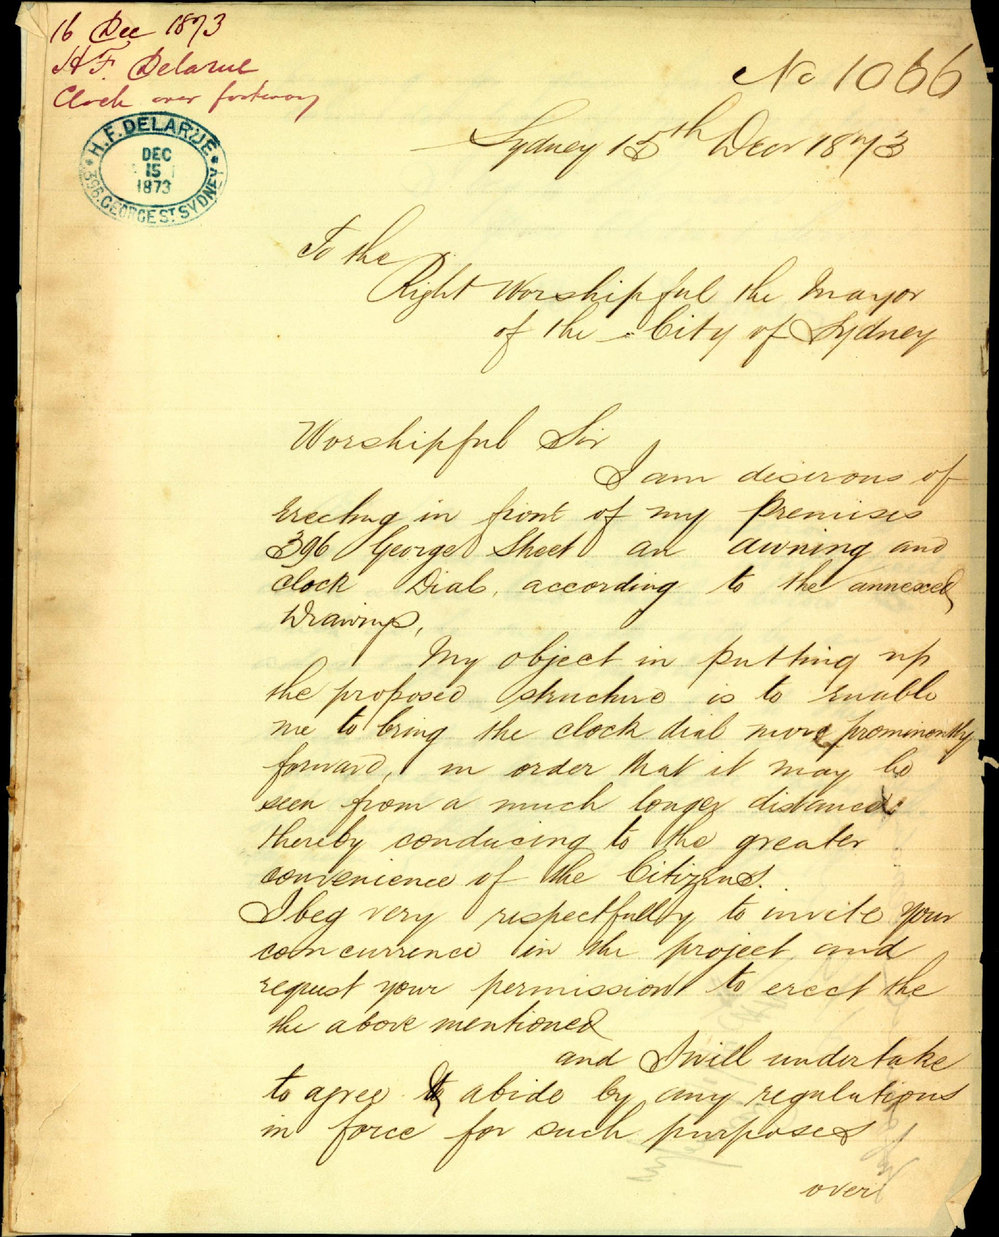 16 Dec 1873
H.F. Delarue
Clock over footway
No 1066
H. F. DELARUE
DEC
15
1873
396. GEORGE ST. SYDNEY
Sydney 15th Decr 1873
To the
Right Worshipful the Mayor
of the City of Sydney
Worshipful Sir
I am desirous of
Erecting in front of my Premises
396 George Street an awning and
Clock Dial, according to the annexed
Drawings,
My object in putting up
the proposed structure is to enable
me to bring the clock dial more prominently
forward, in order that it may be
seen from a much longer distance:
thereby conducing to the greater
convenience of the Citizens.
I beg very respectfully to invite your
concurrence in the project and
request your permission to erect the
the above mentioned
and I will undertake
to agree to abide by any regulations
in force for such purposes
over